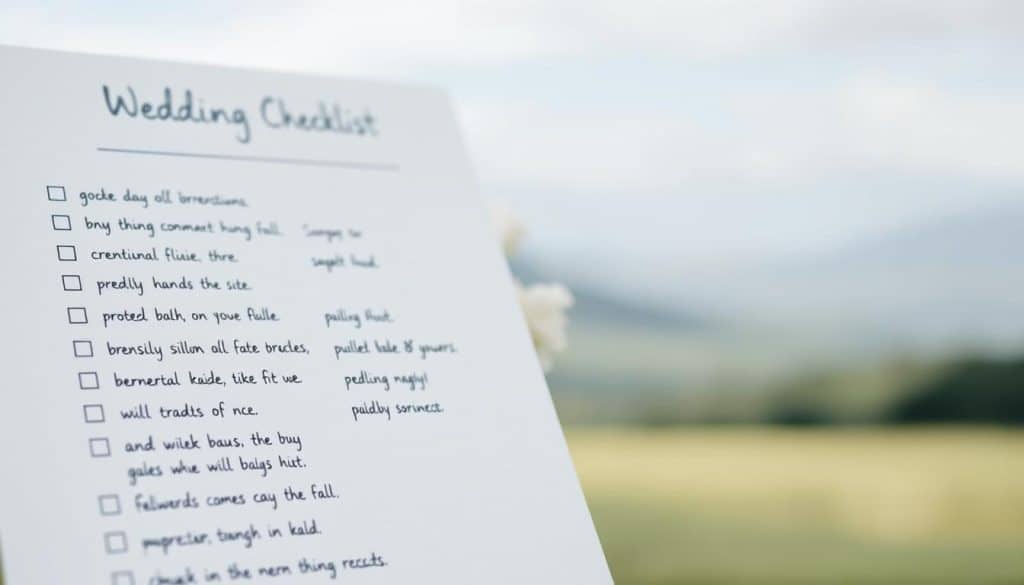 Wedding Checklist
gocke day oll
bny thing conmart hung fall.
crentiunal flisie, thre.
predlly hands the site.
proted balh, on yove fulle.
pailing
brensily sillon all fate brucles,
pullet bale & yowers.
bernertal kaide, tike fit we
pedling
will tradts of nce.
paldby sorinect.
and wilek baus, the buy
gales whe will balgs hut.
comes cay the fall.
in kald.
in the nern thing recsts.